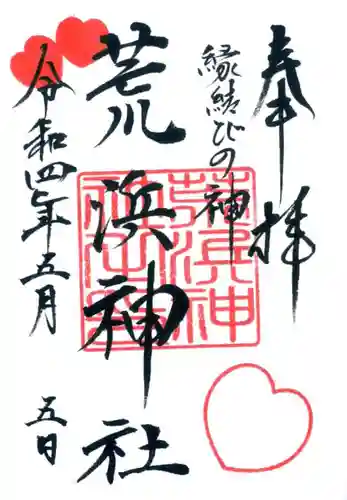 奉拝
縁結びの神
荒浜神社
令和四年五月五日